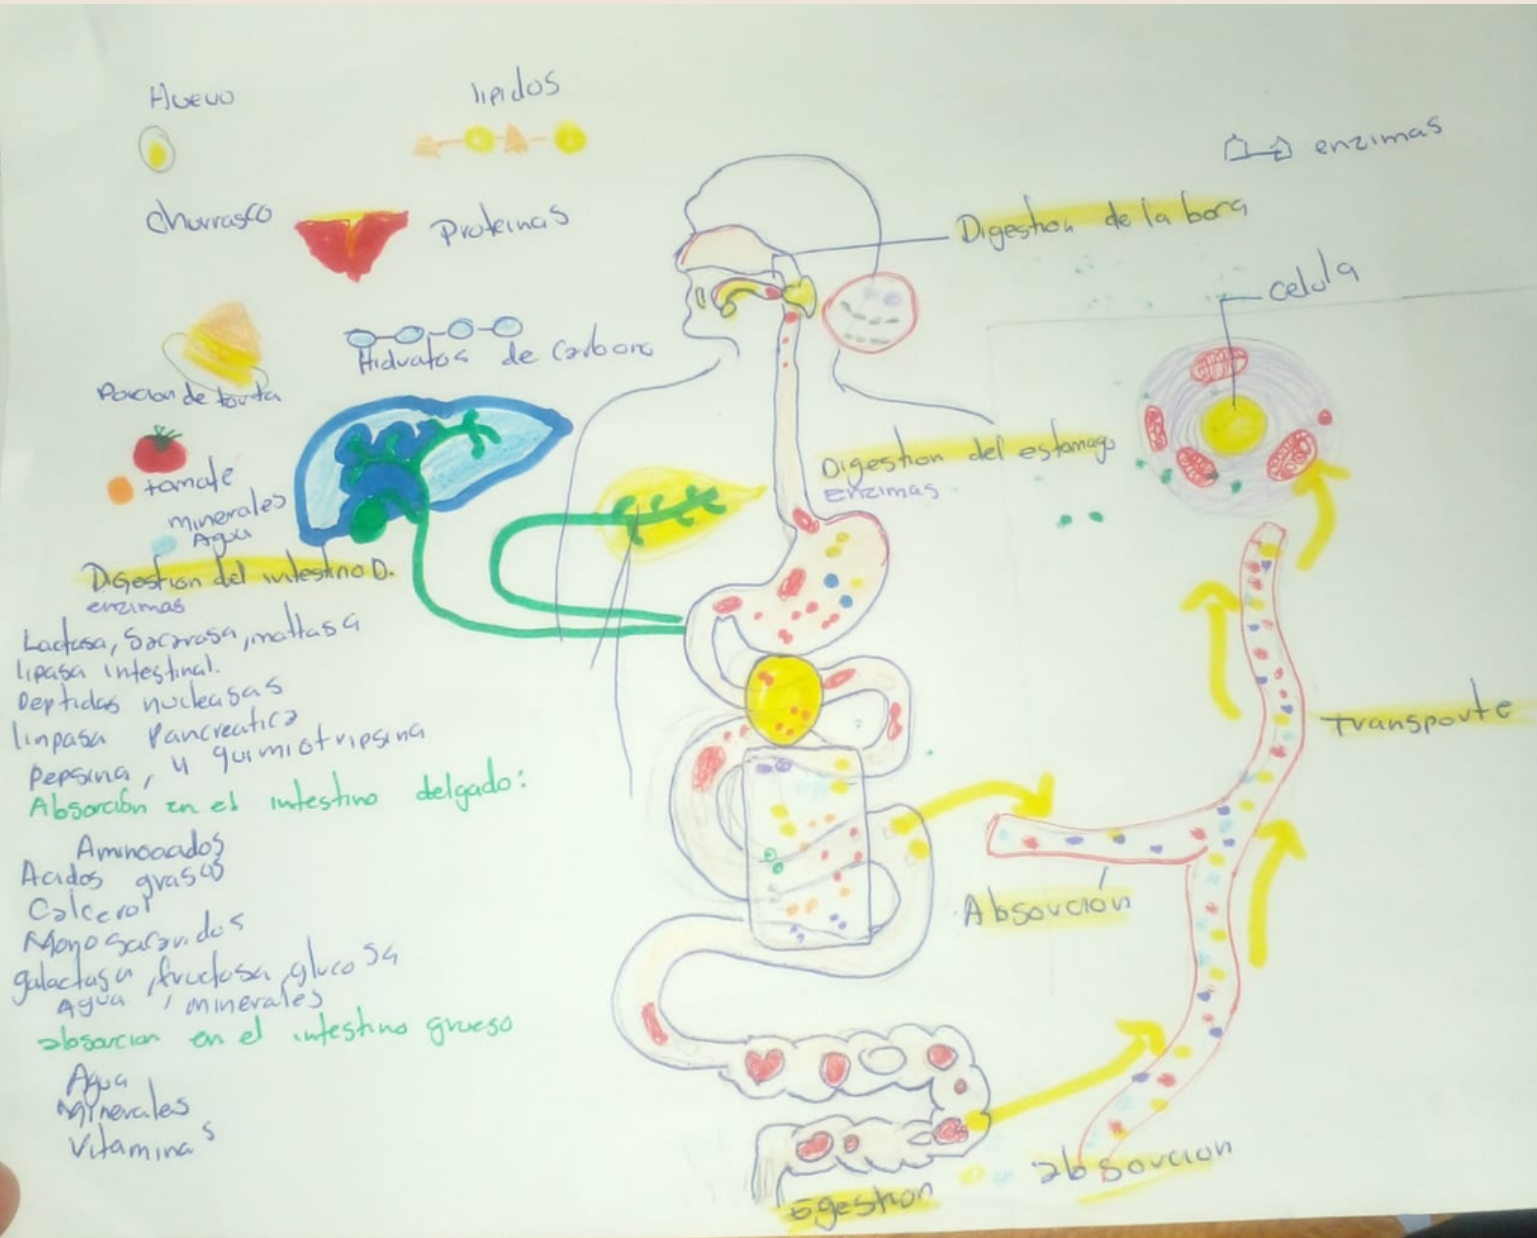 Huevo
lipidos
enzimas
churrasco
Proteinas
Digestion de la boca
celula
Hidratos de Carbono
Porcion de torta
tomate
minerales
Agua
Digestion del estomago
enzimas
Digestion del intestino D.
enzimas
Lactasa, Sacarasa, maltasa
lipasa intestinal.
Peptidas nucleasas
linpasa Pancreatica
Pepsina, y quimiotripsina
Absorción en el intestino delgado:
Aminoacidos
Acidos grasos
Calcerol
Mono sacaridos
galactasa, fructosa, glucosa
Agua, minerales
absorcion en el intestino grueso
Agua
Minerales
Vitaminas
transporte
Absorción
absorcion
Egestion